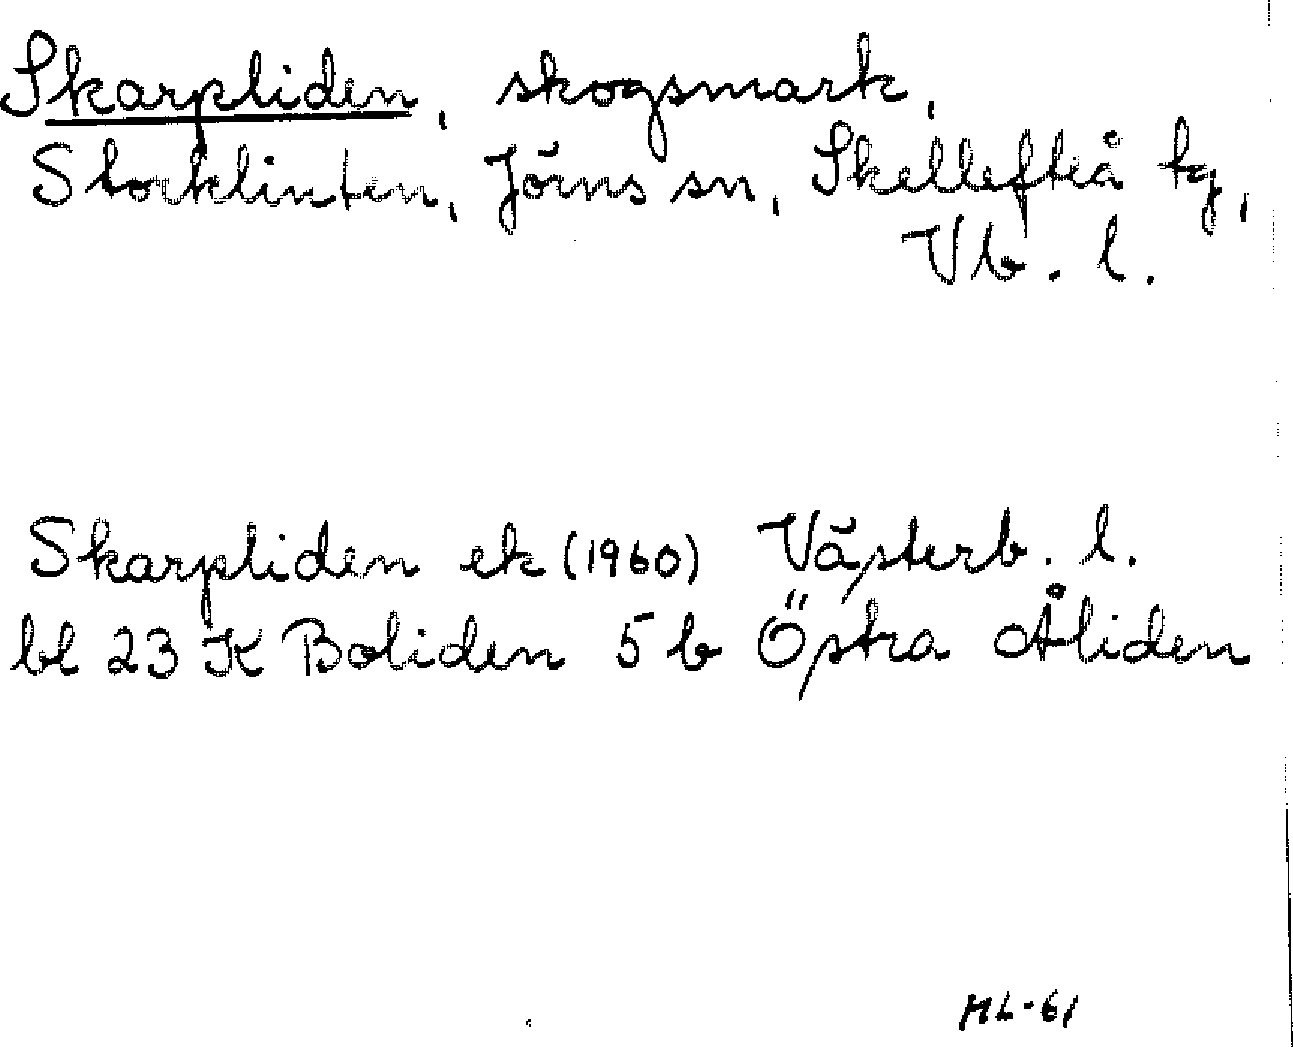 Skarpliden, skogsmark,
Storklinten, Jörns sn, Skellefteå tg,
Vb. l.
Skarpliden ek (1960) Västerb. l.
bl 23 K Boliden 5 b Östra Åliden
ML-61